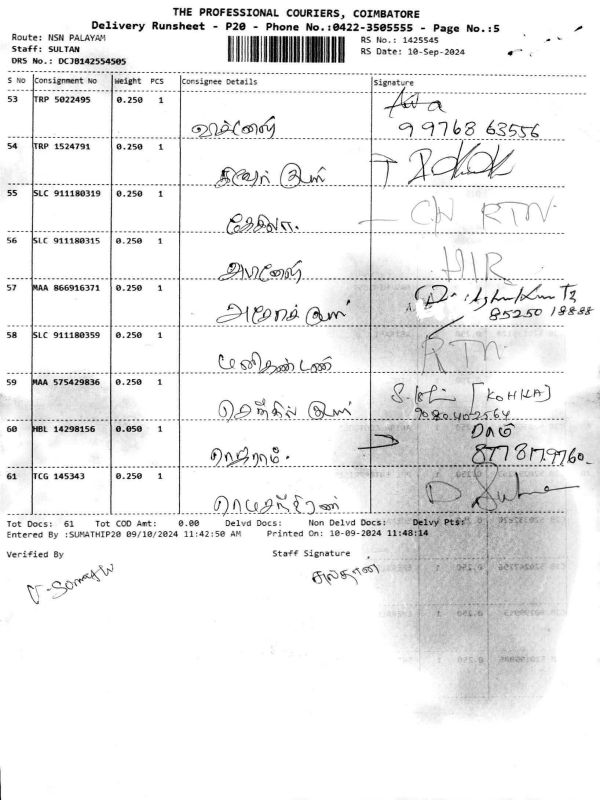 THE PROFESSIONAL COURIERS, COIMBATORE
Delivery Runsheet - P20 - Phone No.:0422-3505555 - Page No.:5
Route: NSN PALAYAM
RS No.: 1425545
Staff: SULTAN
RS Date: 10-Sep-2024
DRS No.: DCJB142554505
S No Consignment No Weight PCS Consignee Details Signature
53 TRP 5022495 0.250 1
99768 63556
54 TRP 1524791 0.250 1
குமார்
55 SLC 911180319 0.250 1
RTN
56 SLC 911180315 0.250 1
57 MAA 866916371 0.250 1
அசோக் குமார்
85250 18888
58 SLC 911180359 0.250 1
மணிகண்டன்
RTN
59 MAA 575429836 0.250 1
செந்தில் குமார்
9080402564
60 HBL 14298156 0.050 1
ராஜாராம்.
ராம்
61 TCG 145343 0.250 1
Tot Docs: 61 Tot COD Amt: 0.00 Delvd Docs: Non Delvd Docs: Delvy Pts:
Entered By :SUMATHIP20 09/10/2024 11:42:50 AM Printed On: 10-09-2024 11:48:14
Verified By Staff Signature
சுல்தான்